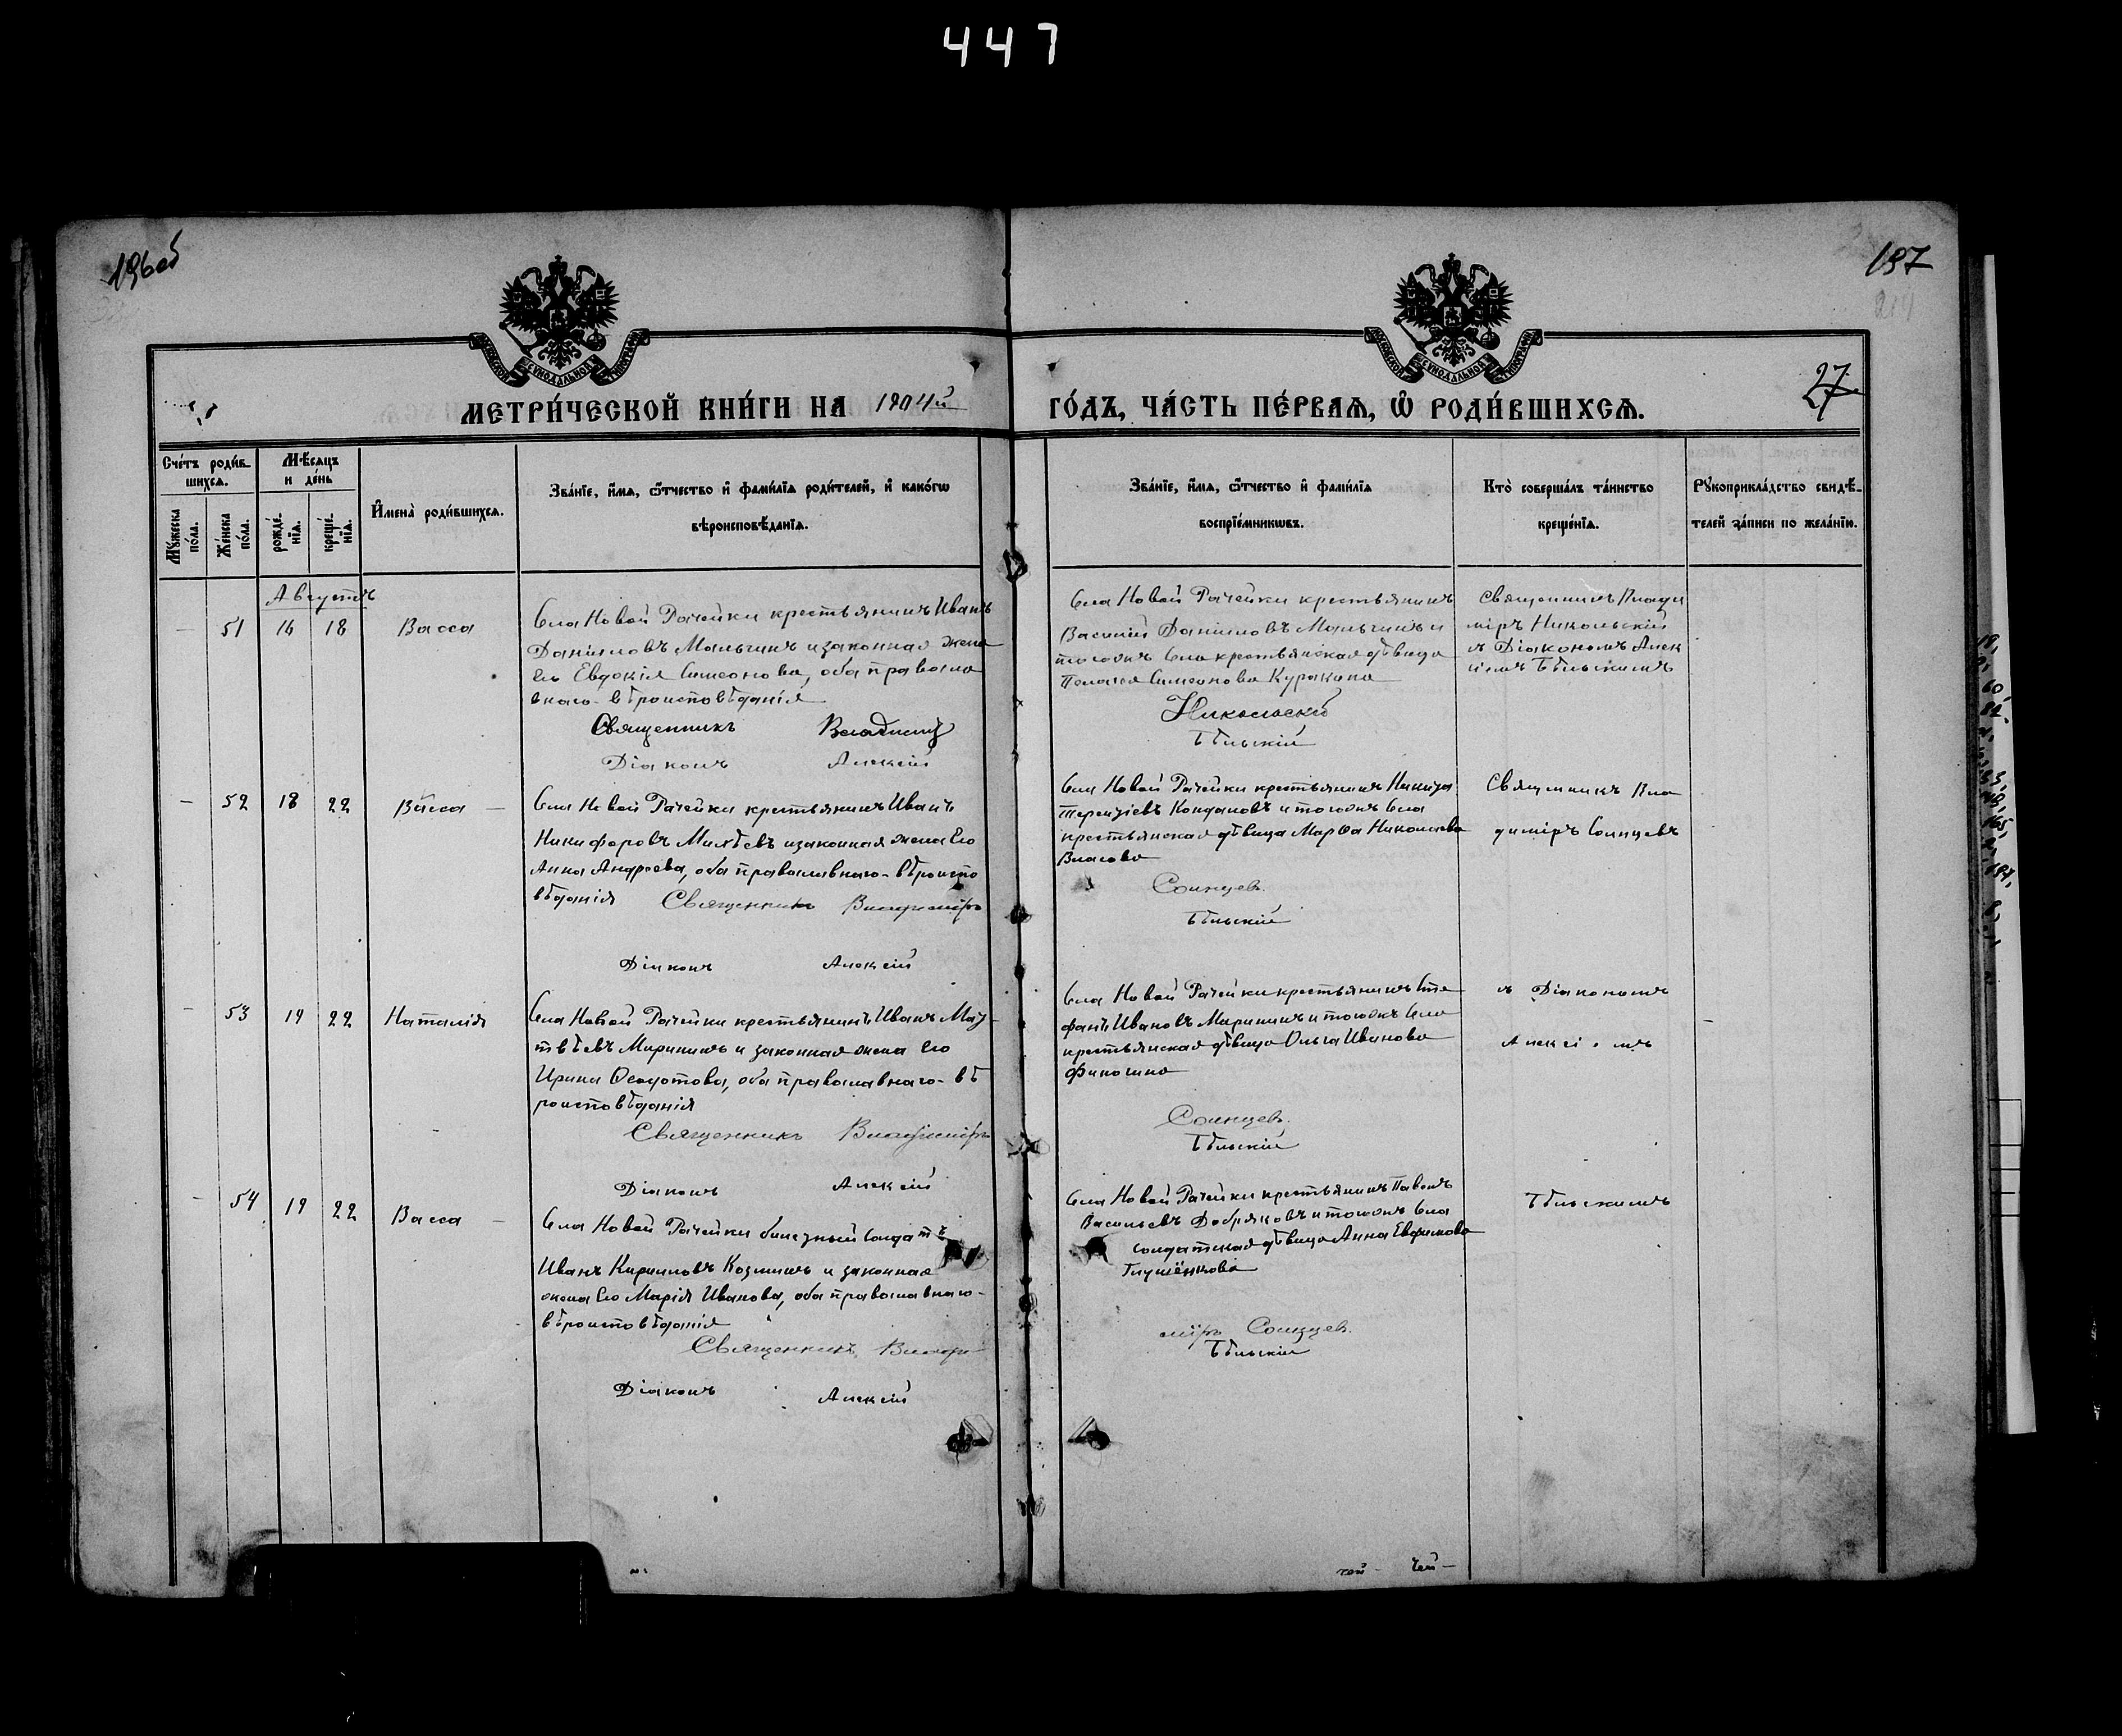 447
196об
197
27
МОСКОВСКОЙ СѴНОДАЛЬНОЙ ТИПОГРАФІИ
МОСКОВСКОЙ СѴНОДАЛЬНОЙ ТИПОГРАФІИ
МЕТРИ́ЧЕСКОЙ КНИ́ГИ НА 1904й
ГО́ДЪ, ЧА́СТЬ ПЕ́РВАѦ, Ѿ РОДИ́ВШИХСѦ.
Сче́тъ роди́в-
шихсѧ.
Мꙋ́жеска по́ла.
Же́нска по́ла.
Мѣ́сѧцъ
и де́нь
рожде́-
нїѧ.
креще́-
нїѧ.
И҆мена̀ роди́вшихсѧ.
Зва́нїе, и҆́мѧ, ѻ҆́тчество и҆ фами́лїѧ роди́телей, и҆ како́гѡ
вѣроисповѣ́данїѧ.
Зва́нїе, и҆́мѧ, ѻ҆́тчество и҆ фами́лїѧ
воспрїе́мникѡвъ.
Кто̀ соверша́лъ та́инство
креще́нїѧ.
Рꙋкоприкла́дство свидѣ́-
телей за́писи по жела́нїю.
Августъ
— 51 16 18 Васса
Села Новой Рачейки крестьянинъ Иванъ
Данiиловъ Мальгинъ и законная жена
Его Евдокiя Симеонова, оба правосла
внаго вѣроисповѣданiя
Священникъ Владимiръ
Дiаконъ Алексiй
Села Новой Рачейки крестьянинъ
Василiй Данiиловъ Мальгинъ и
тогожъ Села крестьянская дѣвица
Пелагея Симеонова Куракина
Никольскiй
Бѣльскiй
Священникъ Влади
мiръ Никольскiй
съ Дiакономъ Алек
сiемъ Бѣльскимъ
— 52 18 22 Васса —
Села Новой Рачейки крестьянинъ Иванъ
Никифоровъ Михѣевъ и законная жена Его
Анна Андреева, оба православнаго вѣроиспо
вѣданiя Священникъ Владимiръ
Дiаконъ Алексiй
Села Новой Рачейки крестьянинъ Никита
Терентiевъ Кондаковъ и тогожъ Села
крестьянская дѣвица Марѳа Николаева
Власова
Солнцевъ.
Бѣльскiй
Священникъ Вла
димiръ Солнцевъ
— 53 19 22 Наталiя
Села Новой Рачейки крестьянинъ Иванъ Мат
твѣевъ Миринимъ и законная жена Его
Ирина Ѳеодотова, оба православнаго вѣ
роисповѣданiя
Священникъ Владимiръ
Дiаконъ Алексiй
Села Новой Рачейки крестьянинъ Сте
фанъ Ивановъ Мирининъ и тогожъ Села
крестьянская дѣвица Ольга Иванова
Финогина
Солнцевъ.
Бѣльскiй
съ Дiакономъ
Алексiемъ
— 54 19 22 Васса —
Села Новой Рачейки билетный Солдатъ
Иванъ Кирилловъ Козминъ и законная
жена Его Марiя Иванова, оба православнаго
вѣроисповѣданiя
Священникъ Влади
Дiаконъ Алексiй
Села Новой Рачейки крестьянинъ Павелъ
Васильевъ Добряковъ и тогожъ Села
солдатская дѣвица Анна Евфимова
Глушёнкова
мiръ Солнцевъ.
Бѣльскiй
Бѣльскимъ